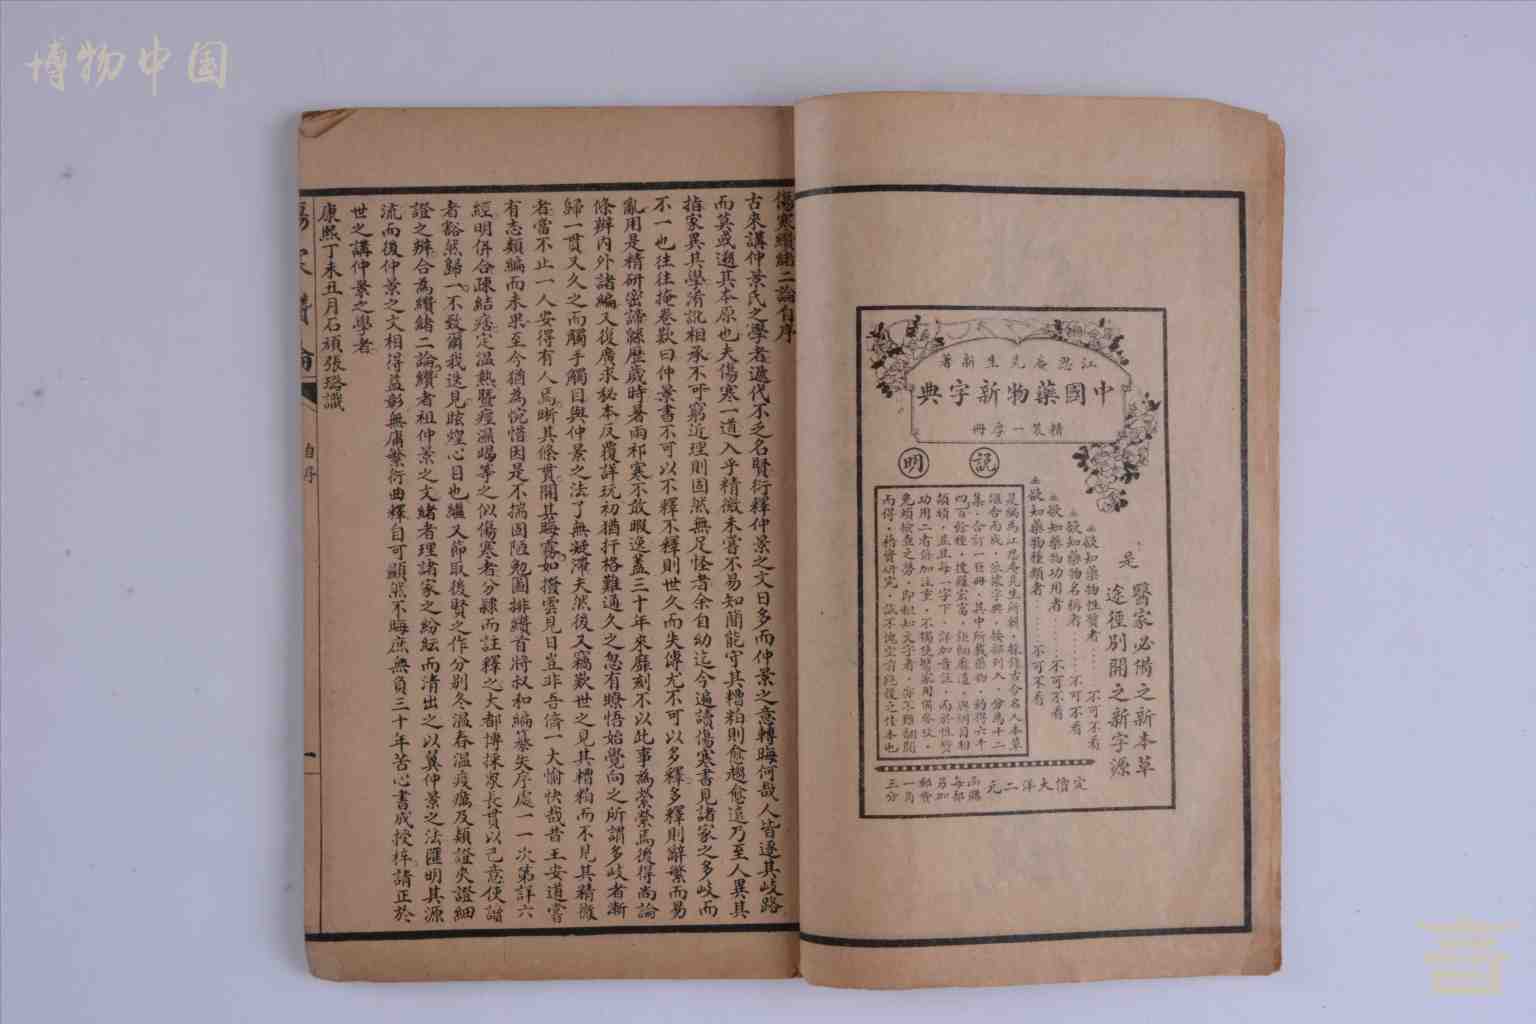 博物中国
江忍庵先生新著
中國藥物新字典
精裝一厚冊
說明
是
醫家必備之新本草
途徑別開之新字源
欲知藥物性質者……不可不看
欲知藥物名稱者……不可不看
欲知藥物功用者……不可不看
欲知藥物種類者……不可不看
是編為江忍庵先生所輯．採錄古今名人本草
匯合而成．依據字典．按部列入．分為十二
集．合訂一巨冊．其中所載藥物．約得六千
四百餘種．搜羅宏富．鉅細靡遺．與綱目相
頡頏．並且每一字下．詳加音註．而於性質
功用二者倍加注重．不獨使醫家用備參攷．
免煩檢查之勞．即粗知文字者．亦不難翻閱
而得．藉資研究．誠不愧空前絕後之佳本也
定價大洋二元
函購每部另加郵費一角三分
傷寒纘緒二論自序
古來講仲景氏之學者遞代不乏名賢衍釋仲景之文日多而仲景之意轉晦何哉人皆逐其岐路
而莫或遡其本原也夫傷寒一道入乎精微未嘗不易知簡能守其糟粕則愈趨愈遠乃至人異其
指家異其學淆訛相承不可窮近理則固然無足怪者余自幼迄今遍讀傷寒書見諸家之多岐而
不一也往往掩卷歎曰仲景書不可以不釋不釋則世久而失傳尤不可以多釋多釋則辭繁而易
亂用是精研密諦繇歷歲時暑雨祁寒不敢暇逸蓋三十年來靡刻不以此事為縈縈焉後得尚論
條辨內外諸編又復廣求秘本反覆詳玩初猶扞格難通久之忽有暸悟始覺向之所謂多岐者漸
歸一貫又久之而觸手觸目與仲景之法了無凝滯夫然後又竊歎世之見其糟粕而不見其精微
者當不止一人安得有人焉晰其條貫開其晦霧如撥雲見日豈非吾儕一大愉快哉昔王安道嘗
有志類編而未果至今猶為惋惜因是不揣固陋勉圖排纘首將叔和編纂失序處一一次第詳六
經明併合疎結痞定溫熱暨痙濕暍等之似傷寒者分隸而註釋之大都博採眾長貫以己意使讀
者豁然歸一不致爾我迭見眩煌心目也繼又節取後賢之作分別冬溫春溫疫癘及類證夾證細
證之辨合為纘緒二論纘者祖仲景之文緒者理諸家之紛紜而清出之以翼仲景之法匯明其源
流而後仲景之文相得益彰無庸繁衍曲釋自可顯然不晦庶無負三十年苦心書成授梓請正於
世之講仲景之學者
康熙丁未丑月石頑張璐識
自序
一